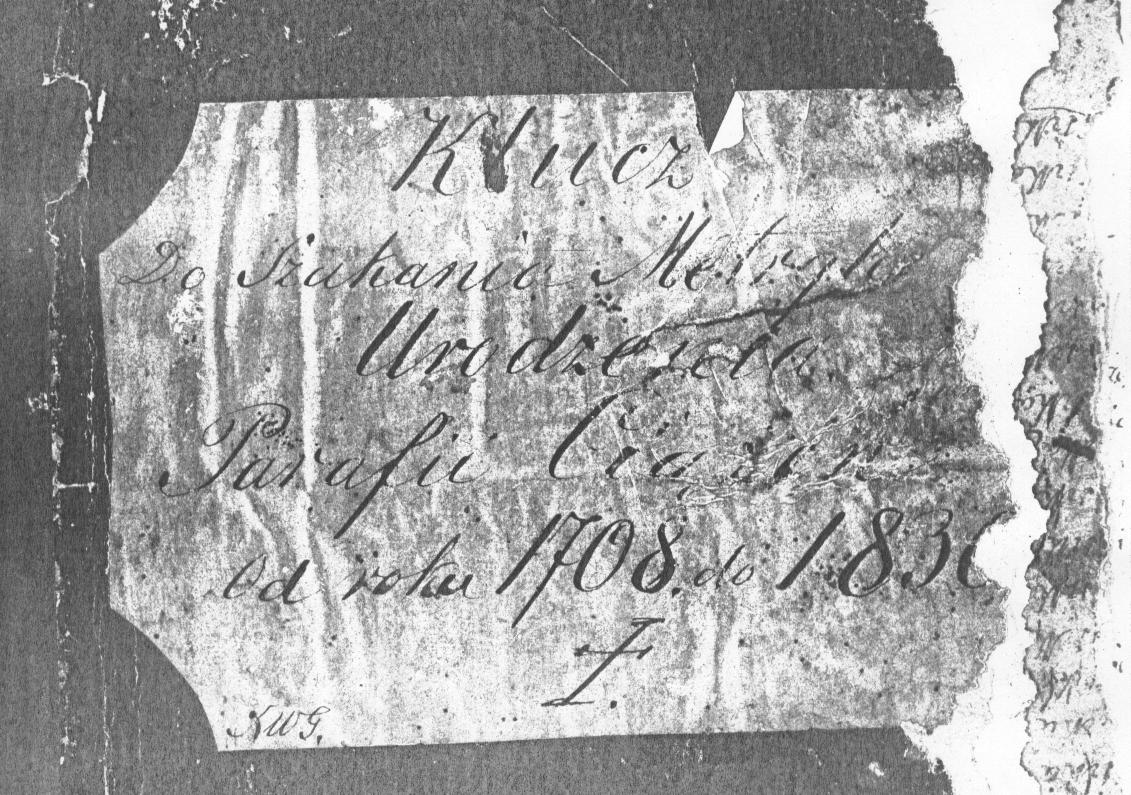 Klucz
Do Szukania Metryk
Urodzenia
Parafii
Od roku 1708. do 1830
I.
XWG.